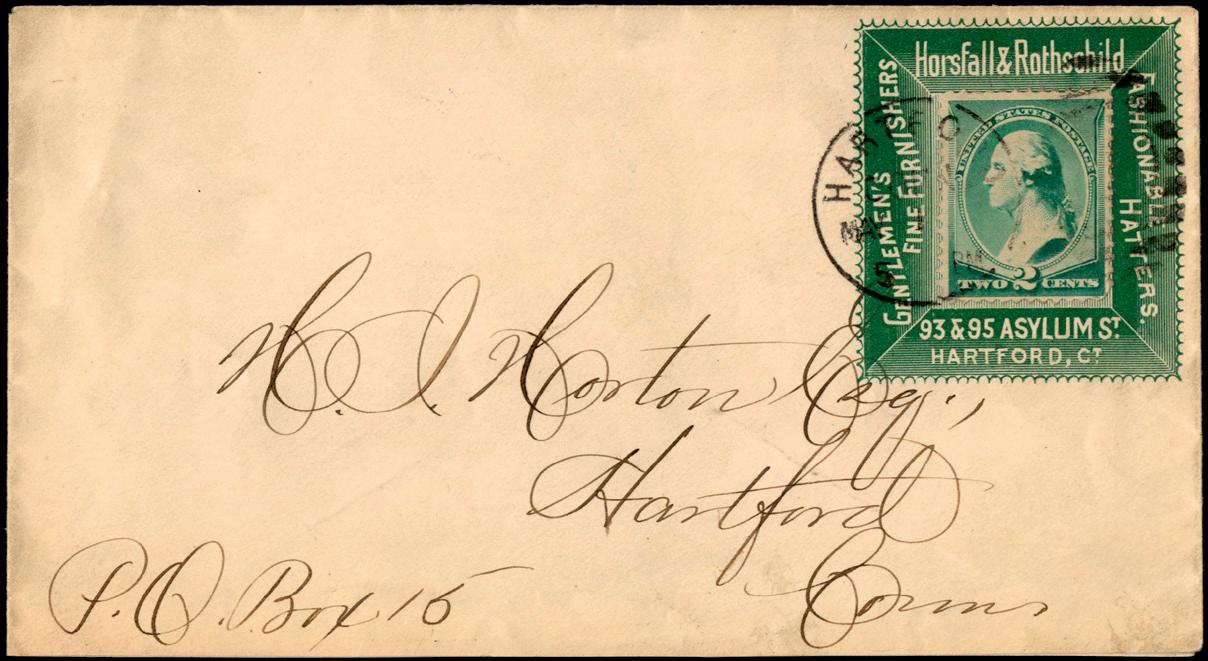 Horsfall & Rothschild
GENTLEMEN'S
FINE FURNISHERS
FASHIONABLE
HATTERS.
UNITED STATES POSTAGE
2
TWO CENTS
93 & 95 ASYLUM ST.
HARTFORD, CT
HARTFO
MAY
PM
H. I. Horton Esq.,
Hartford
Conn
P.O. Box 15